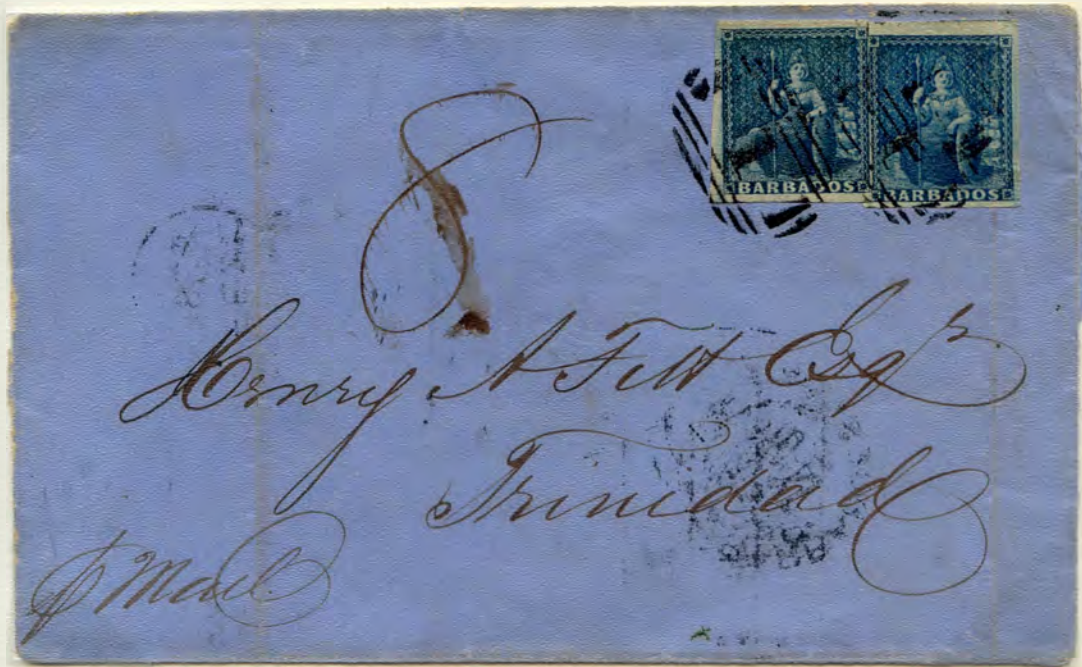 BARBADOS BARBADOS
8
Henry A Fitt Esqr.
Trinidad
PAID
p Mail